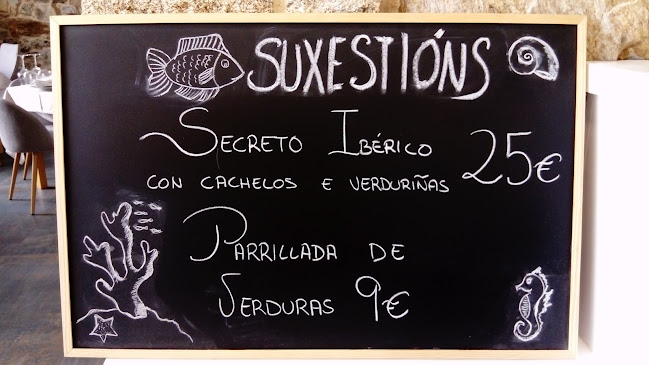 SUXESTIÓNS
SECRETO IBÉRICO 25€
CON CACHELOS E VERDURIÑAS
PARRILLADA DE
VERDURAS 9€